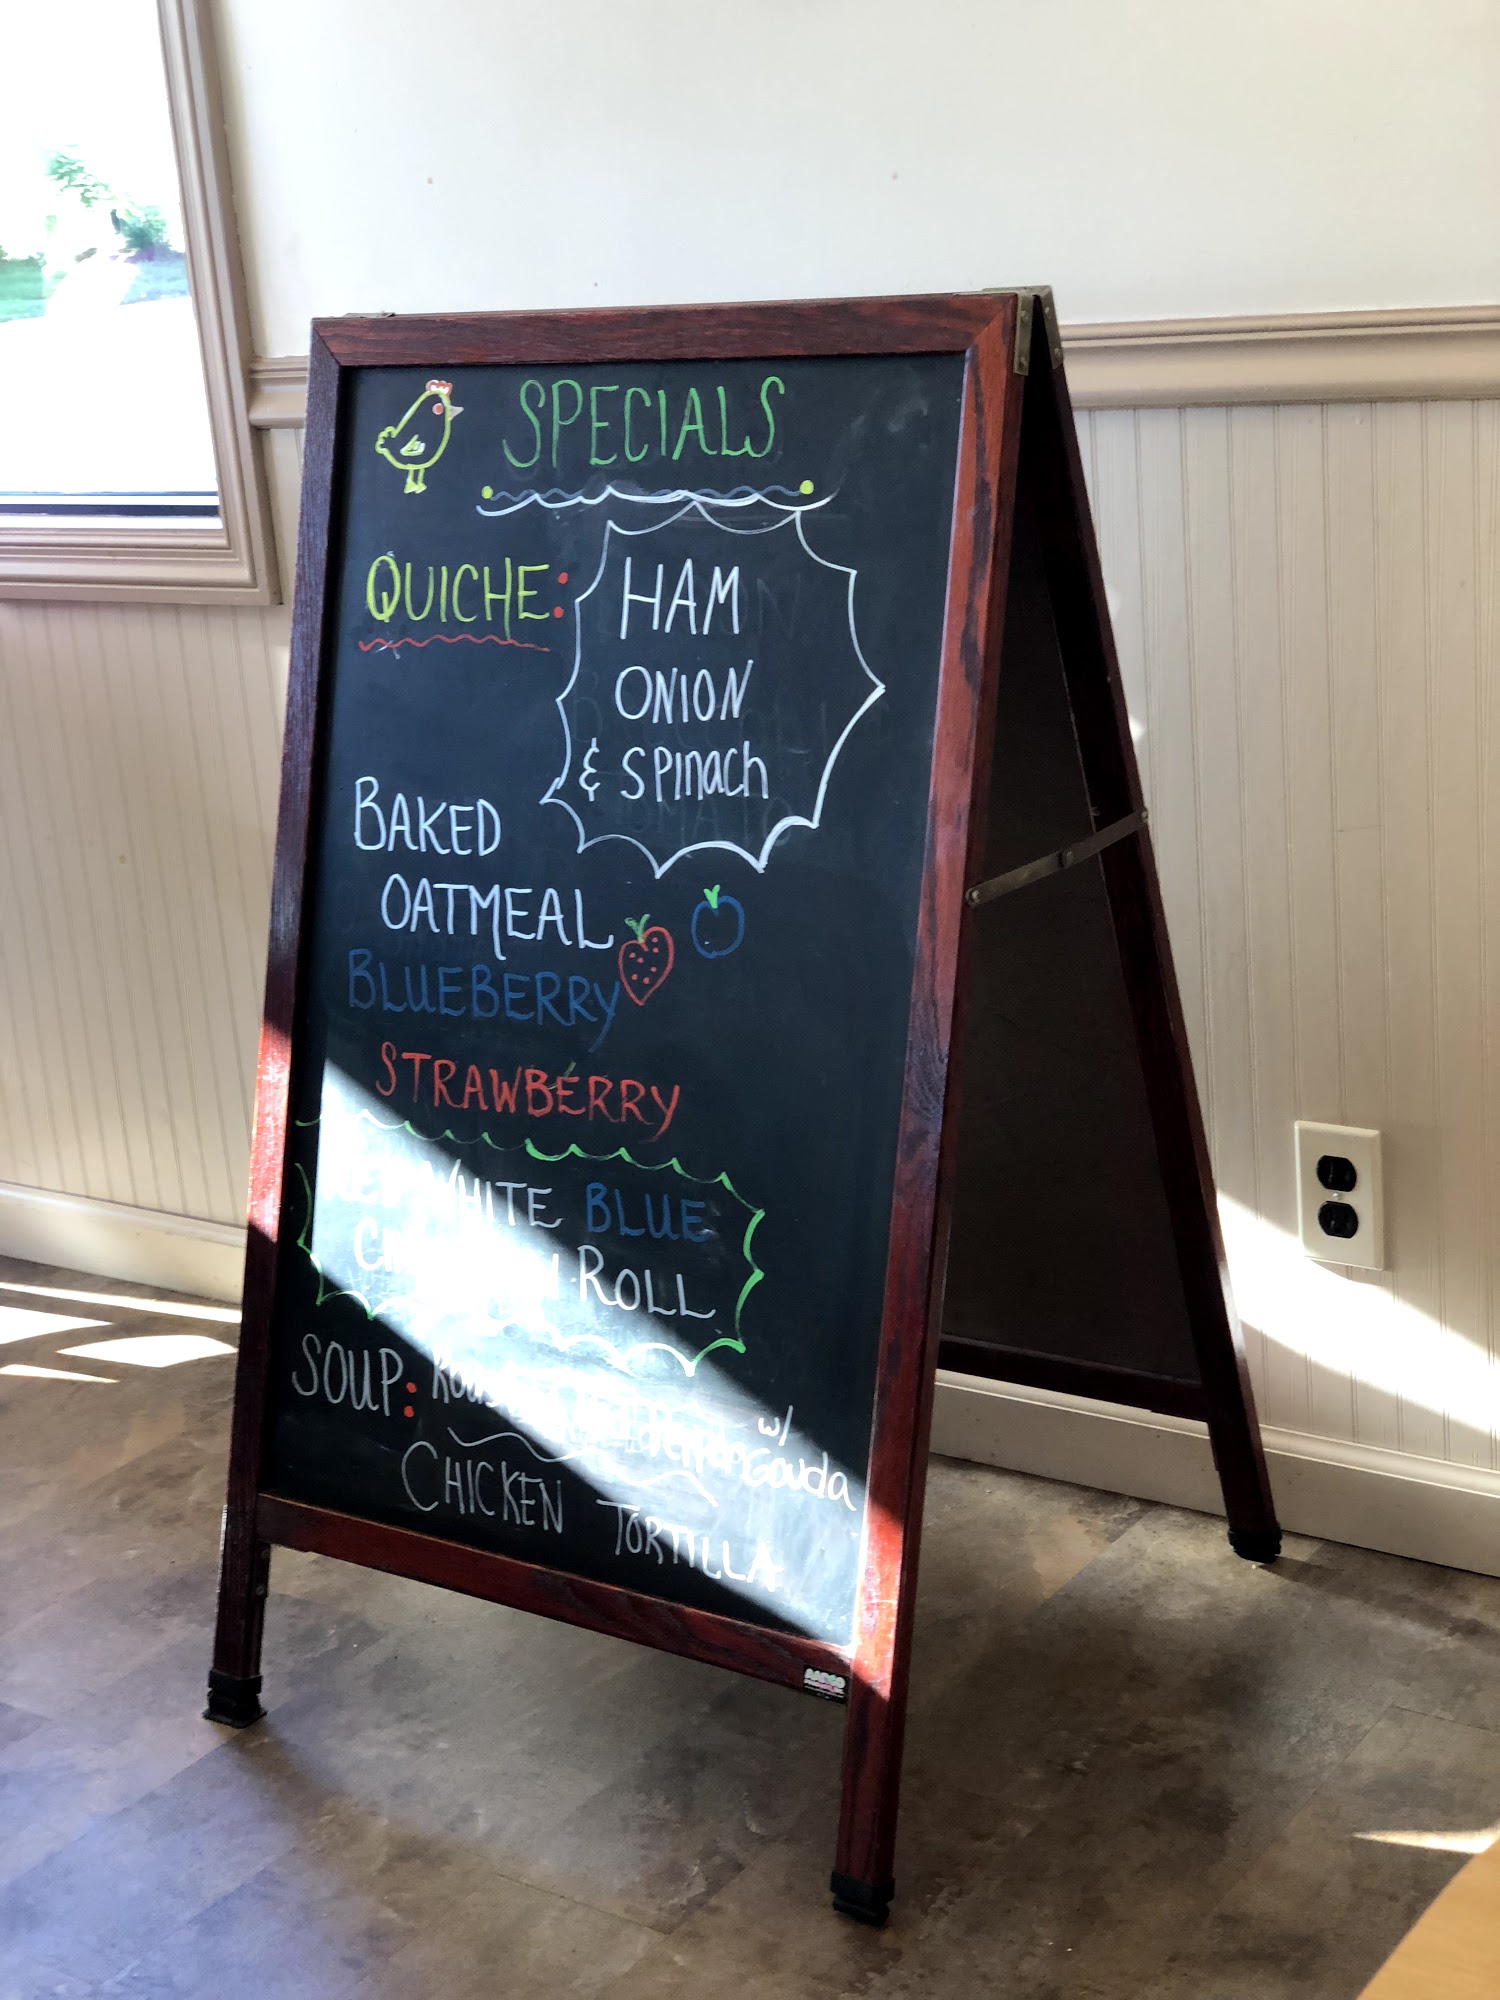 SPECIALS
QUICHE:
HAM
ONION
& SPINACH
BAKED
OATMEAL
BLUEBERRY
STRAWBERRY
WHITE BLUE
ROLL
SOUP: w/
Gouda
CHICKEN TORTILLA